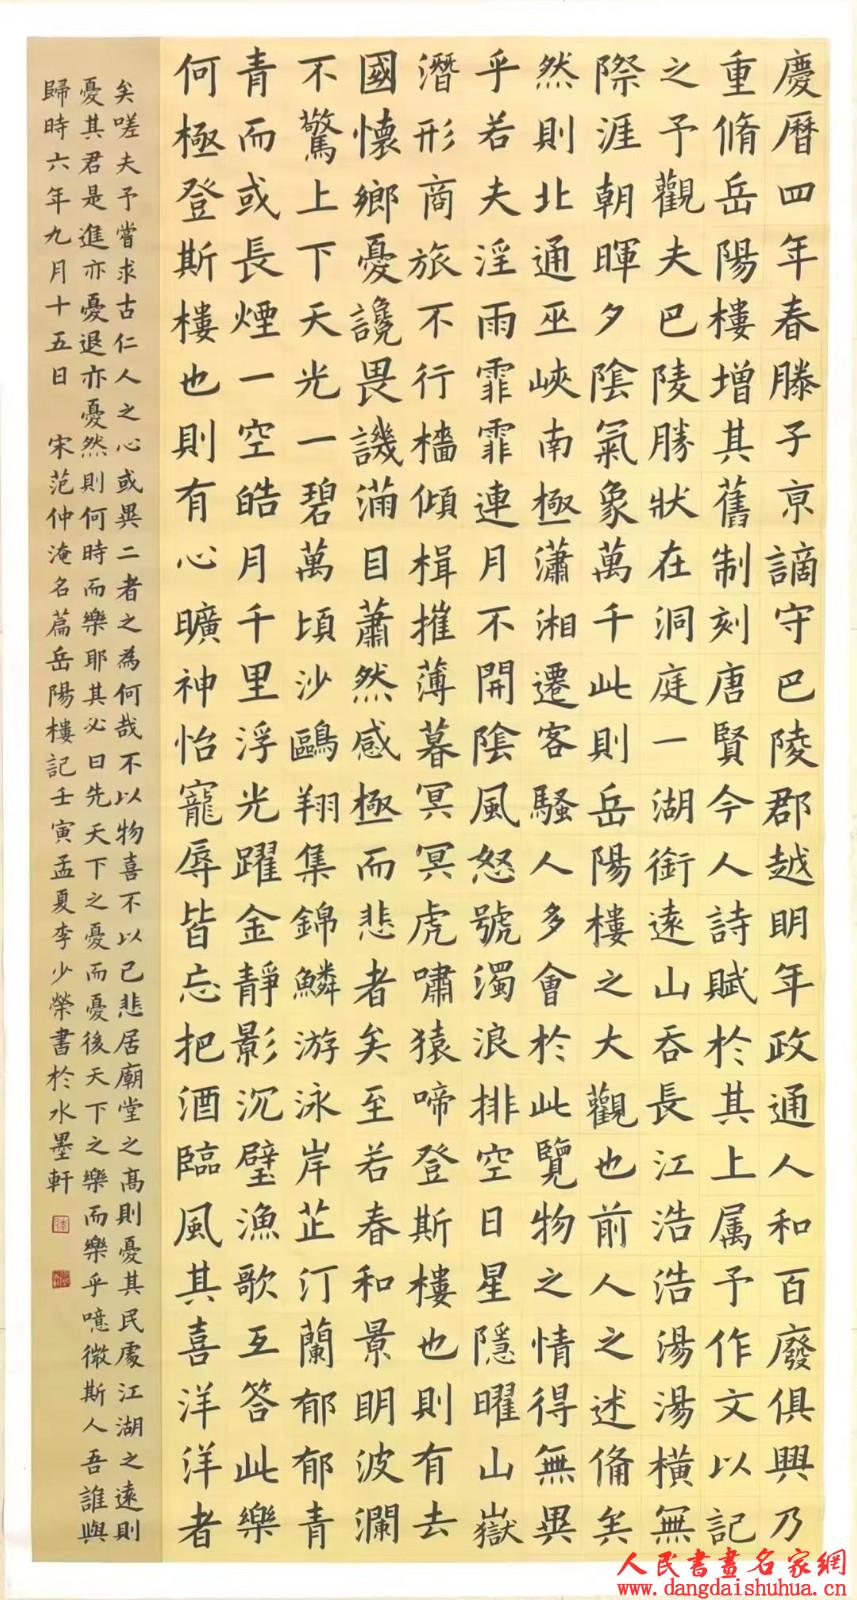 慶曆四年春滕子京謫守巴陵郡越明年政通人和百廢俱興乃
重脩岳陽樓增其舊制刻唐賢今人詩賦於其上属予作文以記
之予觀夫巴陵勝狀在洞庭一湖銜遠山吞長江浩浩湯湯橫無
際涯朝暉夕陰氣象萬千此則岳陽樓之大觀也前人之述備矣
然則北通巫峽南極瀟湘遷客騷人多會於此覽物之情得無異
乎若夫淫雨霏霏連月不開陰風怒號濁浪排空日星隱曜山嶽
潛形商旅不行檣傾楫摧薄暮冥冥虎嘯猿啼登斯樓也則有去
國懷鄉憂讒畏譏滿目蕭然感極而悲者矣至若春和景明波瀾
不驚上下天光一碧萬頃沙鷗翔集錦鱗游泳岸芷汀蘭郁郁青
青而或長煙一空皓月千里浮光躍金靜影沉璧漁歌互答此樂
何極登斯樓也則有心曠神怡寵辱皆忘把酒臨風其喜洋洋者
矣嗟夫予嘗求古仁人之心或異二者之為何哉不以物喜不以己悲居廟堂之高則憂其民處江湖之遠則
憂其君是進亦憂退亦憂然則何時而樂耶其必曰先天下之憂而憂後天下之樂而樂乎噫微斯人吾誰與
歸時六年九月十五日 宋范仲淹名篇岳陽樓記壬寅孟夏李少榮書於水墨軒
人民書畫名家網
www.dangdaishuhua.cn